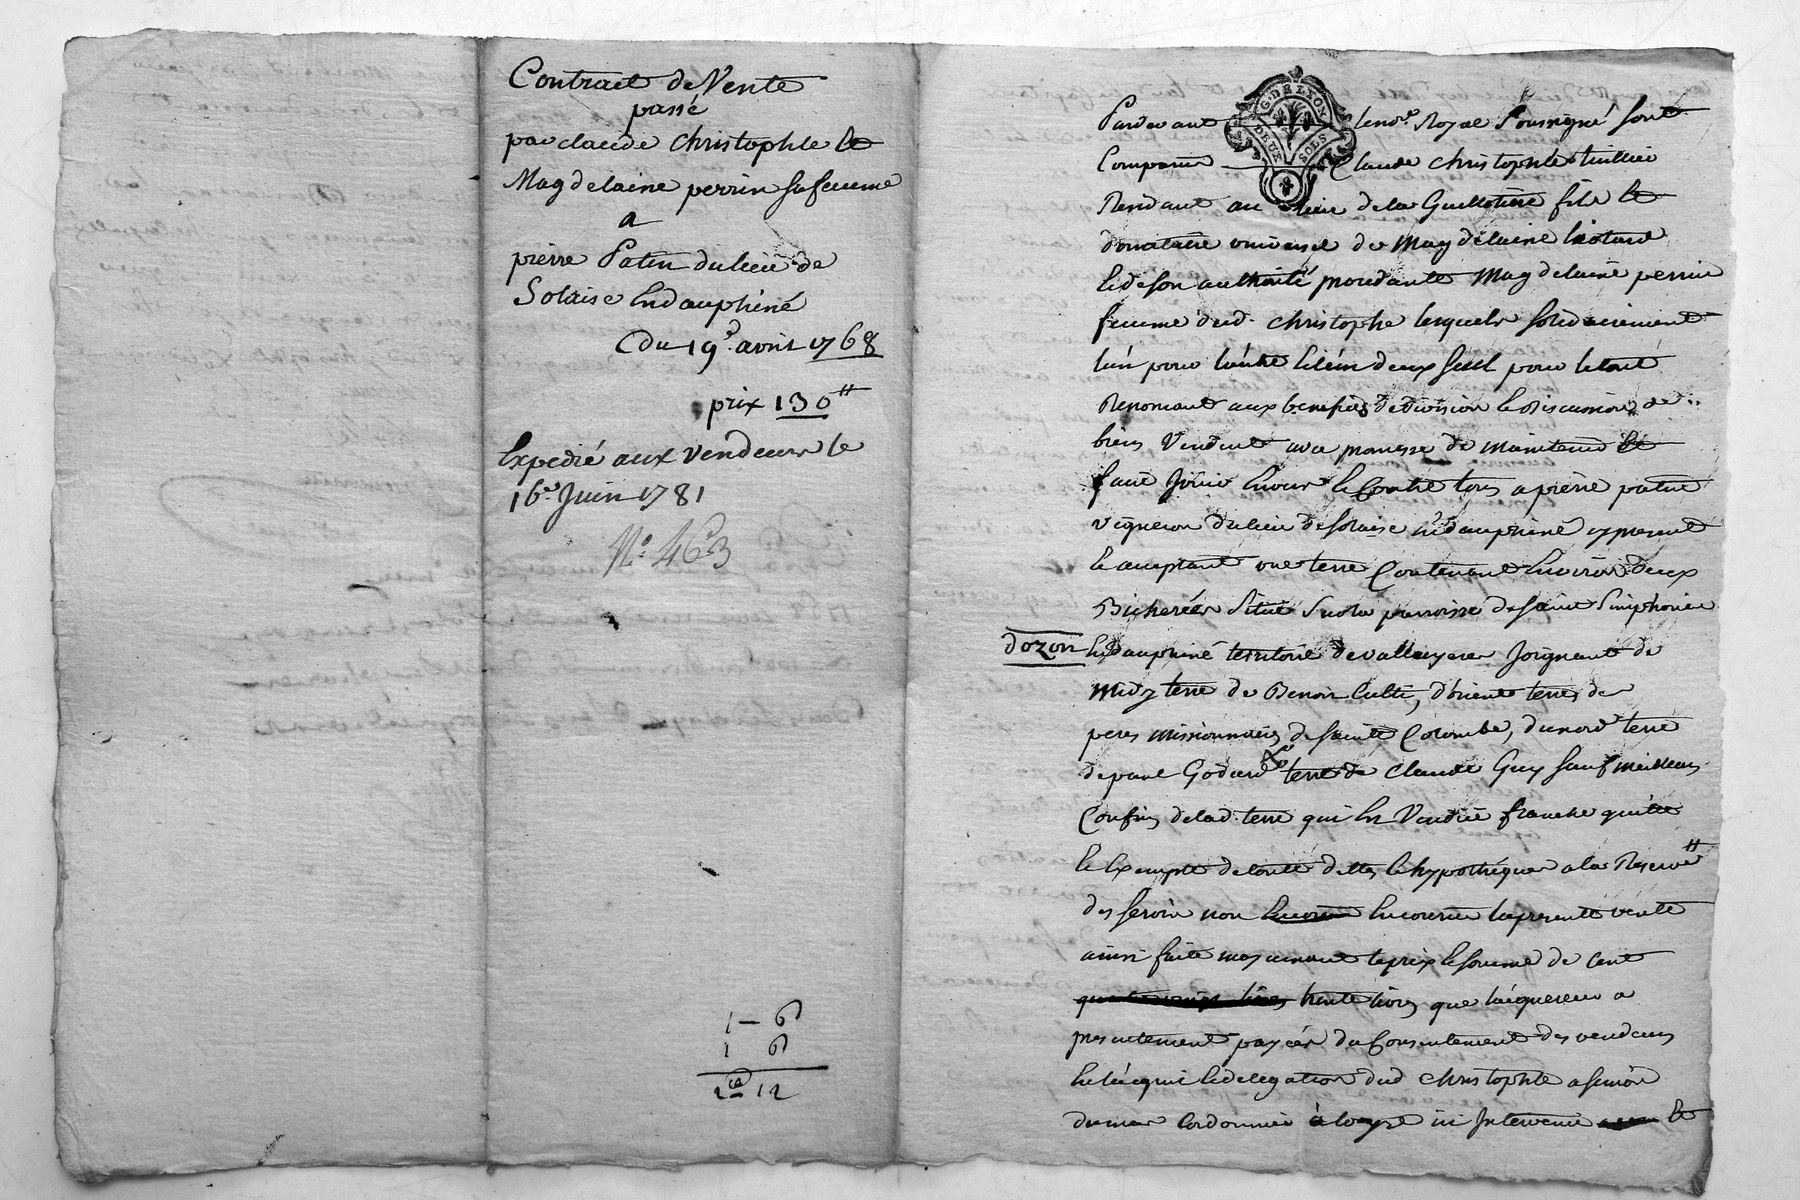 Contract de Vente
passé
par claude christophle et
Magdelaine perrin sa femme
a
pierre Patin du lieu de
Solaise En dauphiné
du 19e. avril 1768
prix 130 ₶
Expedié aux vendeurs le
16e. Juin 1781
No. 463
1 - 6
1 6
2 12
G. DE LYON
DEUX SOLS
Pardevant le nore Royal Soussigné sont
Comparus Claude christophle
Residant au lieu de la Guillotiere fils et
donataire universel de Magdelaine
et de son authorité procedante Magdelaine perrin
femme dud. christophe lesquels solidairement
l'un pour l'autre et l'un d'eux seul pour le tout
Renoncant aux benefices de division et discussion de
biens Vendent avec promesse de maintenir et
faire Jouir Envers et Contre tous a pierre patin
vigneron du lieu de solaise En dauphiné cy present
et acceptant une terre Contenant Environ deux
Bicherées Situé sur la parroisse de saint Simphorien
dozon En dauphiné territoire de Joignant de
midy terre de Benoit d'orient terre des
peres missionnaires de sainte Colombe, du nord terre
de paul Godard terre de Claude Guy sauf meilleurs
Confins de lad. terre qui Est Vendue franche quitte
et Exempte de toutte dettes et hypothéques a la Reserve
des servis non Encourus la presente vente
ainsi faite moyennant le prix et somme de Cent
trente livres que l'acquereur a
presentement payées du Consentement des vendeurs
et delegation dud christophle a simon
Cordonnier à Lozanne ici Intervenu et